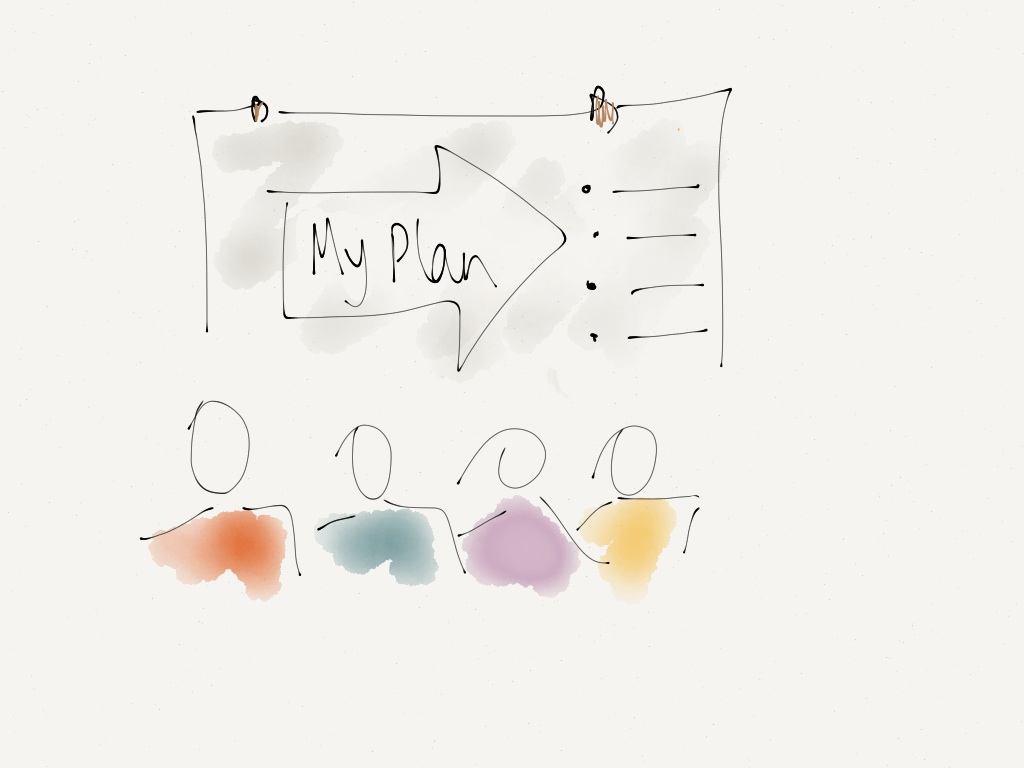 My Plan